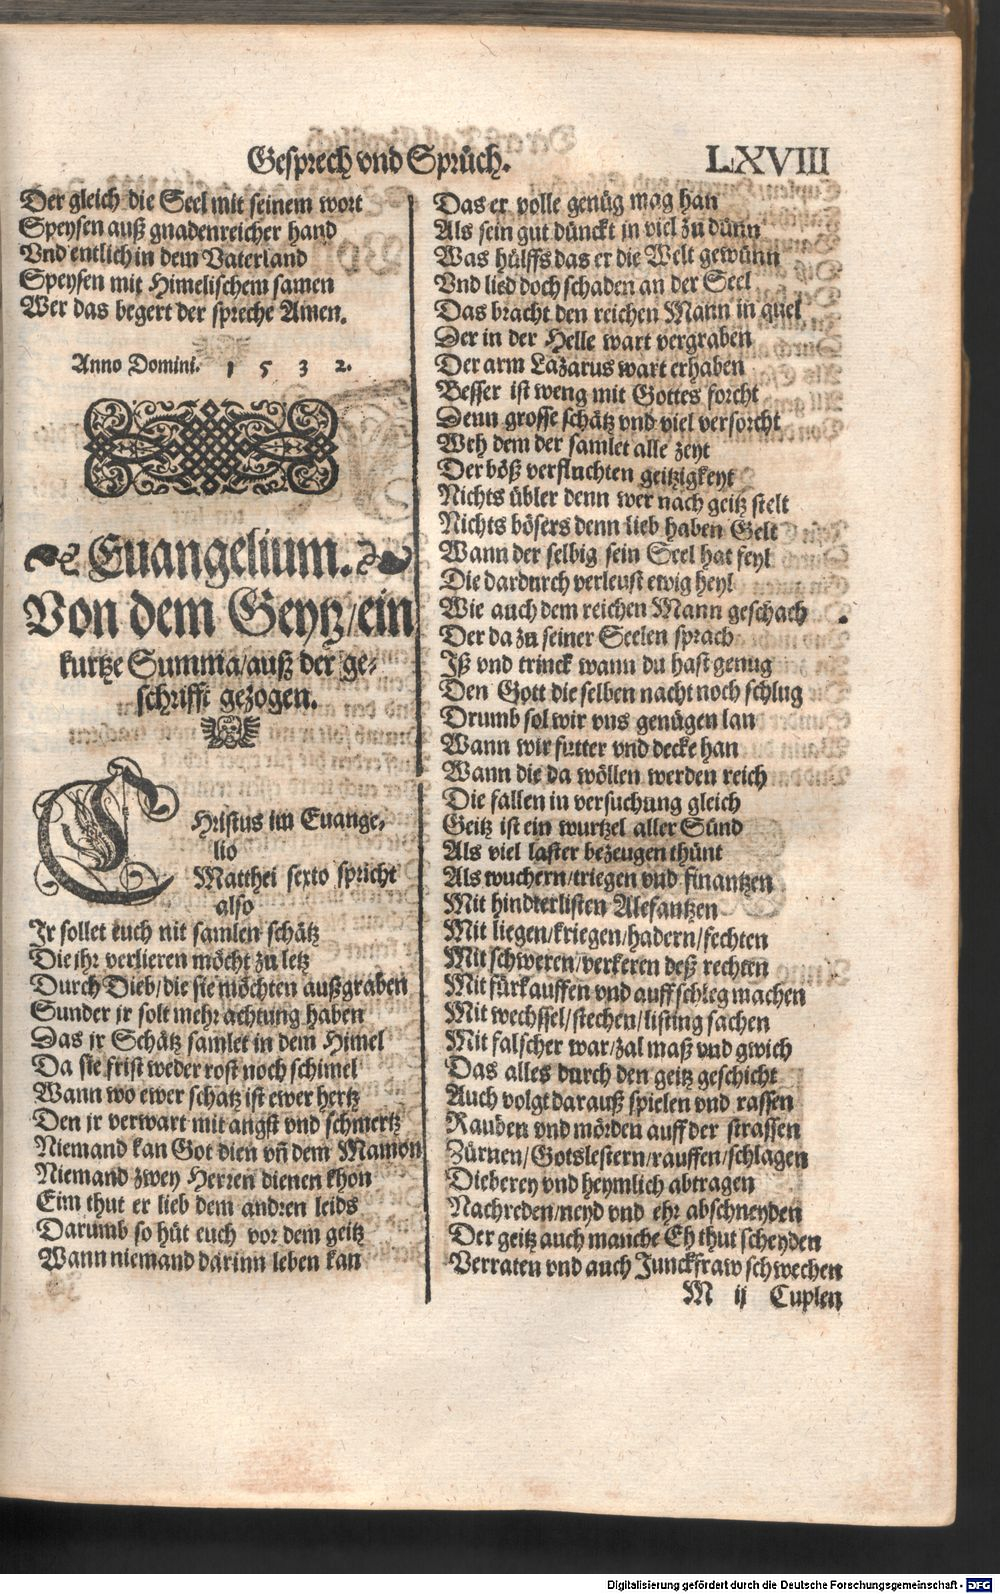 Gesprech vnd Sprüch. LXVIII
Der gleich die Seel mit seinem wort
Speysen auß gnadenreicher hand
Vnd entlich in dem Vaterland
Speysen mit Himelischem samen
Wer das begert der spreche Amen.
Anno Domini. 1 5 3 2.
Euangelium.
Von dem Geytz/ein
kurtze Summa/auß der ge-
schrifft gezogen.
CHristus im Euange-
lio
Matthei sexto spricht
also
Jr sollet euch nit samlen schätz
Die jhr verlieren möcht zu letz
Durch Dieb/die sie möchten außgraben
Sunder jr solt mehr achtung haben
Das jr Schätz samlet in dem Himel
Da sie frist weder rost noch schimel
Wann wo ewer schatz ist ewer hertz
Den jr verwart mit angst vnd schmertz
Niemand kan Got dien vn̄ dem Mamon
Niemand zwey Herren dienen khon
Eim thut er lieb dem andren leids
Darumb so hüt euch vor dem geitz
Wann niemand darinn leben kan
Das er volle genüg mag han
Als sein gut dünckt in viel zu dünn
Was hülffs das er die Welt gewünn
Vnd lied doch schaden an der Seel
Das bracht den reichen Mann in quel
Der in der Helle wart vergraben
Der arm Lazarus wart erhaben
Besser ist weng mit Gottes forcht
Denn grosse schätz vnd viel versorcht
Weh dem der samlet alle zeyt
Der böß verfluchten geitzigkeyt
Nichts übler denn wer nach geitz stelt
Nichts bösers denn lieb haben Gelt
Wann der selbig sein Seel hat feyl
Die dardurch verleust ewig heyl
Wie auch dem reichen Mann geschach
Der da zu seiner Seelen sprach
Jß vnd trinck wann du hast genug
Den Gott die selben nacht noch schlug
Drumb sol wir vns genügen lan
Wann wir futter vnd decke han
Wann die da wöllen werden reich
Die fallen in versuchung gleich
Geitz ist ein wurtzel aller Sünd
Als viel laster bezeugen thünt
Als wuchern/triegen vnd finantzen
Mit hindterlisten Alefantzen
Mit liegen/kriegen/hadern/fechten
Mit schweren/verkeren deß rechten
Mit fürkauffen vnd auff schleg machen
Mit wechssel/stechen/listing sachen
Mit falscher war/zal maß vnd gwich
Das alles durch den geitz geschicht
Auch volgt darauß spielen vnd rassen
Rauben vnd mörden auff der strassen
Zürnen/Gotslestern/rauffen/schlagen
Dieberey vnd heymlich abtragen
Nachreden/neyd vnd ehr abschneyden
Der geitz auch manche Eh thut scheyden
Verraten vnd auch Junckfraw schwechen
M ij Cuplen
Digitalisierung gefördert durch die Deutsche Forschungsgemeinschaft - DFG